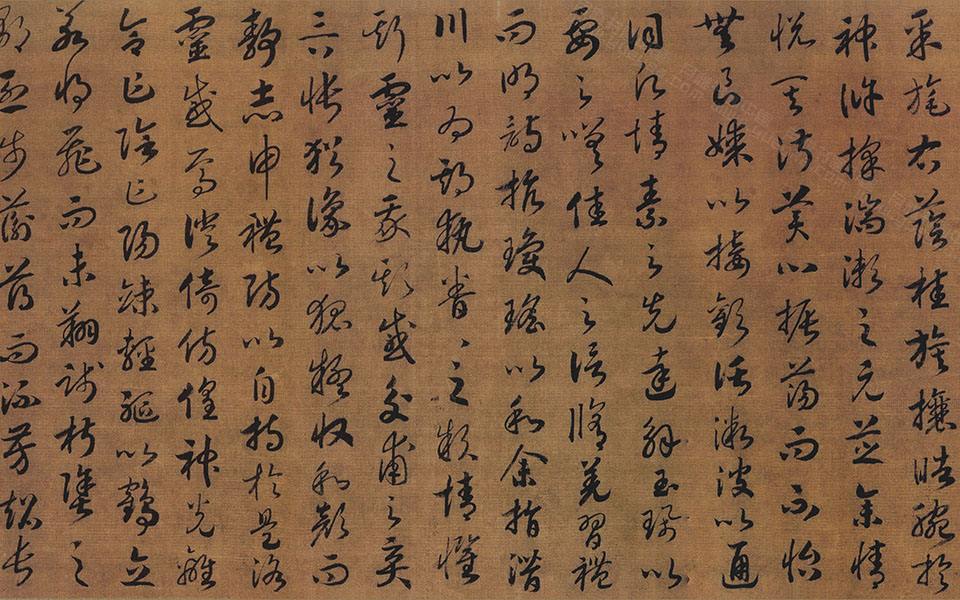 采旄右蔭桂旗攘皓腕於
神滸採湍瀨之玄芝余情
悅其淑美心振蕩而不怡
無良媒以接歡託微波以通
詞願情素之先達解玉珮以
要之嗟佳人之信脩羌習禮
而明詩抗瓊瑤以和余指潛
川以為期執眷々之款情懼
斯靈之我欺感交甫之棄
言悵猶豫以狐疑收和顏而
靜志申禮防以自持於是洛
靈感焉徙倚仿偟神光離
合乍陰乍陽竦輕軀以鶴立
若將飛而未翔踐椒塗之
郁烈步蘅薄而流芳超長